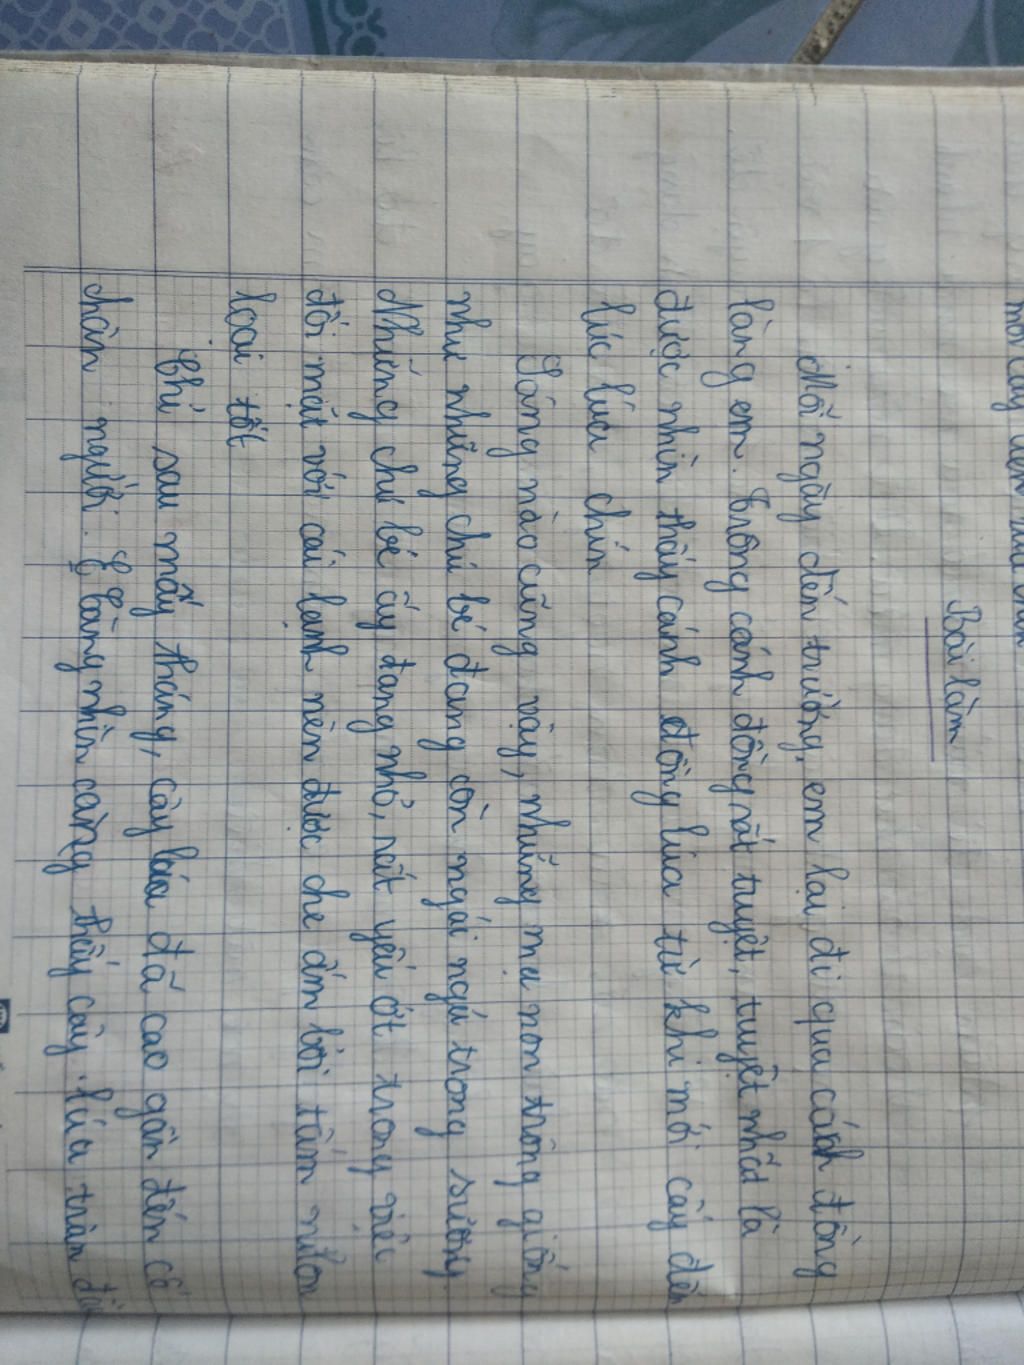 Bài làm
Mỗi ngày đến trường, em lại đi qua cánh đồng
làng em. Trông cánh đồng rất tuyệt, tuyệt nhất là
được nhìn thấy cánh đồng lúa từ khi mới cấy đến
lúc lúa chín
Sáng nào cũng vậy, những mạ non trông giống
như những chú bé đang còn ngái ngủ trong sương.
Những chú bé ấy đang nhỏ, rất yếu ớt trong việc
đối mặt với cái lạnh nên được che ấm bởi tấm nilon
loại tốt
Chỉ sau mấy tháng, cây lúa đã cao gần đến cổ
chân người. Càng nhìn càng thấy cây lúa tràn